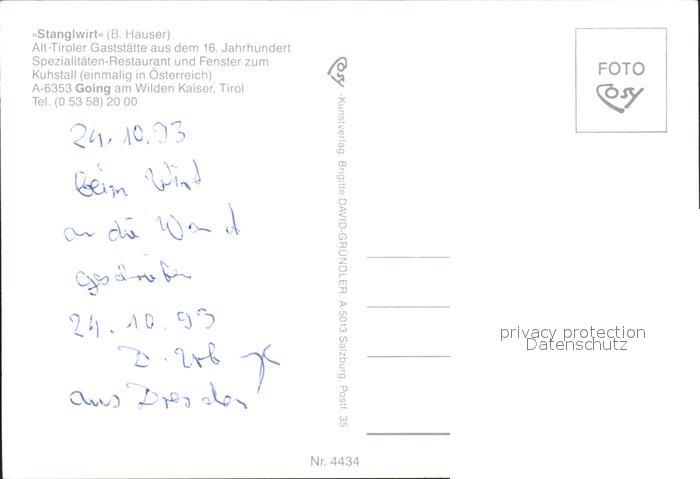 »Stanglwirt« (B. Hauser)
Alt-Tiroler Gaststätte aus dem 16. Jahrhundert
Spezialitäten-Restaurant und Fenster zum
Kuhstall (einmalig in Österreich)
A-6353 Going am Wilden Kaiser, Tirol
Tel. (0 53 58) 20 00
24.10.93
beim Wirt
an die Wand
geschrieben
24.10.93
aus Dresden
Cosy
-Kunstverlag, Brigitte DAVID-GRÜNDLER, A-5013 Salzburg, Postf. 35
FOTO
Cosy
privacy protection
Datenschutz
Nr. 4434